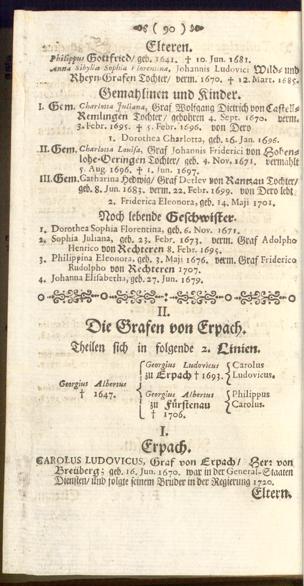 ( 90 )
Elteren.
Philippus Gottfried/ geb. 1641. † 10. Jun. 1681.
Anna Sibylla Sophia Florentina, Johannis Ludovici Wild- und
Rheyn-Grafen Tochter/ verm. 1670. † 12. Mart. 1685.
Gemahlinen und Kinder.
I. Gem. Charlotta Juliana, Graf Wolfgang Dietrich von Castell-
Remlingen Tochter/ gebohren 4. Sept. 1670. verm.
3. Febr. 1695. † 5. Febr. 1696. von Dero
1. Dorothea Charlotta, geb. 26. Jan. 1696.
II. Gem. Charlotta Louisa, Graf Johannis Friderici von Hohen-
lohe-Oeringen Tochter/ geb. 4. Nov. 1671. vermählt
5. Aug. 1696. † 1. Jun. 1697.
III. Gem. Catharina Hedwig/ Graf Detlev von Rantzau Tochter/
geb. 8. Jun. 1683. verm. 22. Febr. 1699. von Dero lebt
2. Friderica Eleonora, geb. 14. Maji 1701.
Noch lebende Geschwister.
1. Dorothea Sophia Florentina, geb. 6. Nov. 1671.
2. Sophia Juliana, geb. 23. Febr. 1673. verm. Graf Adolpho
Henrico von Rechteren 8. Febr. 1695.
3. Philippina Eleonora, geb. 3. Maji 1676. verm. Graf Friderico
Rudolpho von Rechteren 1707.
4. Johanna Elisabetha, geb. 27. Jun. 1679.
II.
Die Grafen von Erpach.
Theilen sich in folgende 2. Linien.
Georgius Albertus
† 1647.
Georgius Ludovicus
zu Erpach † 1693.
Carolus
Ludovicus.
Georgius Albertus
zu Fürstenau
† 1706.
Philippus
Carolus.
I.
Erpach.
CAROLUS LUDOVICUS, Graf von Erpach/ Herr von
Breüberg; geb. 16. Jun. 1670. war in der General-Staaten
Diensten/ und folgte seinem Bruder in der Regierung 1720.
Eltern.